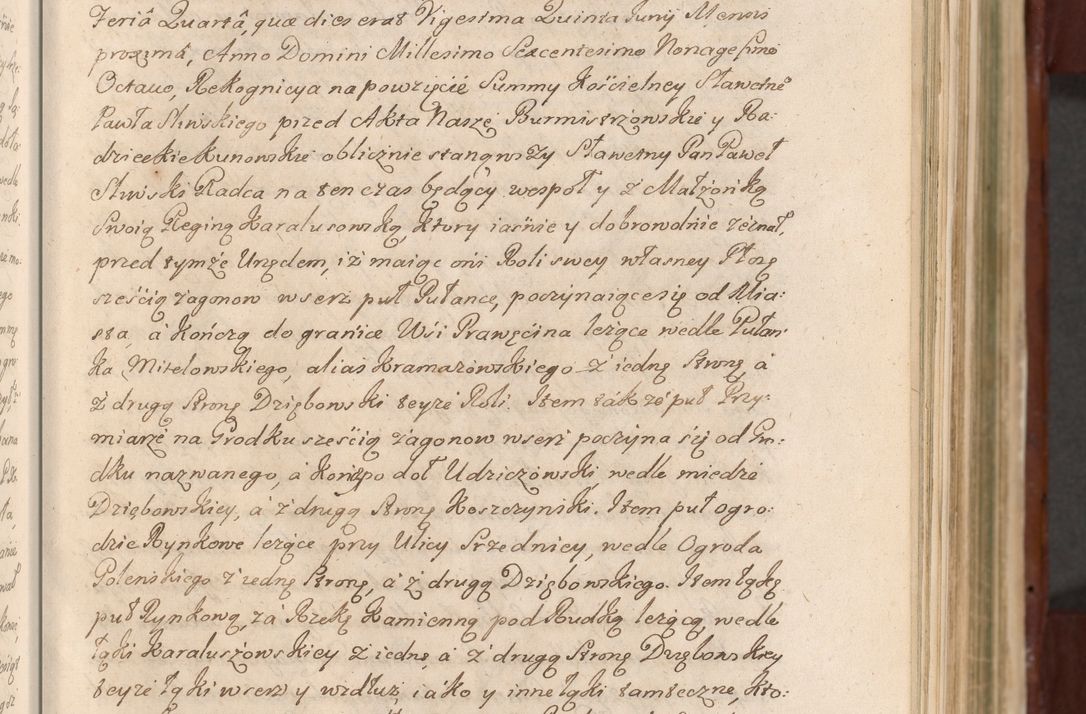 Feriâ Quartâ, quæ dies erat Vigesima Quinta Junij Mensis
proximâ, Anno Domini Millesimo Sexcentesimo Nonagesimo
Octauo, Rekognicya na powzięćie Summy Kośćielney Sławetne
Pawła Sliwskiego przed Akta Nasze Burmistrzowskie y Ra:
dzieckie Kunowskie oblicznie stanąwszy Sławetny Pan Paweł
Sliwski Radca na ten czas będący wespoł y z Małżonką
Swoią Reginą Karalusowską, ktory iaśnie y dobrowolnie zeznał,
przed tymże Urzędem, iż maiąc oni Roli swey własney
sześćią zagonow wserz puł Pułance, poczynaiące się od Mia:
sta, á kończą do granice Wśi Prawęćina leżące wedle Pułan:
ka Mitelowskiego, alias Kramarzowskiego z iednę stronę, á
z drugą stronę Dziębowski teyże Roli. Item tákże puł Przy:
miarże na Grodku sześćią zagonow wserz poczyna się od Gro:
dku nazwanego, á kończy po doł Udziczowski, wedle miedze
Dziębowskiey, á z drugą stronę Koszczyński. Item puł ogro:
dzie Rynkowe leżące przy Ulicy Srzedniey, wedle Ogroda
Poleńskiego z iednę stronę, á z drugą Dziębowskiego. Item łąkę
puł Rynkową, zá Rzeką Kamienną pod Rudką leżącą, wedle
łąki Karaluszowskiey z iednę á z drugą stronę Dziębowskiey
teyże łąki wserz y wzdłuż, iáko y inne łąki tameczne, kto: